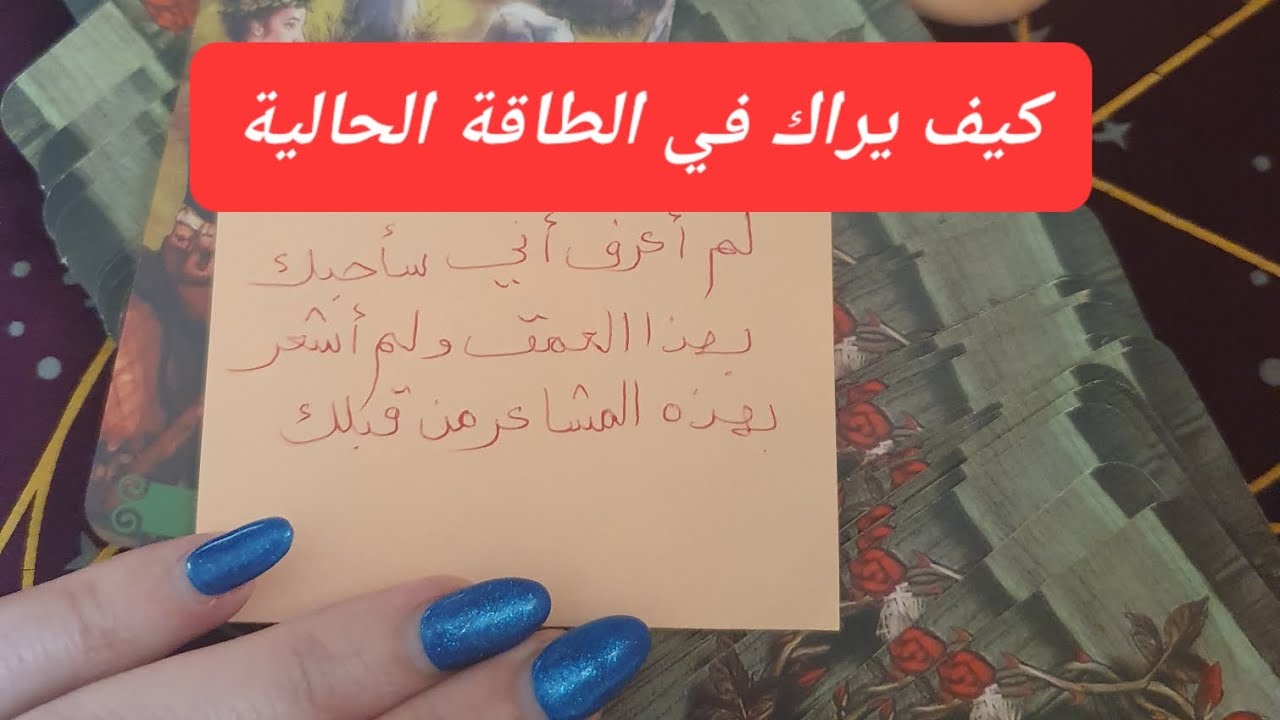 كيف يراك في الطاقة الحالية
لم أعرف أني سأحبك
بهذا العمق ولم أشعر
بهذه المشاعر من قبلك